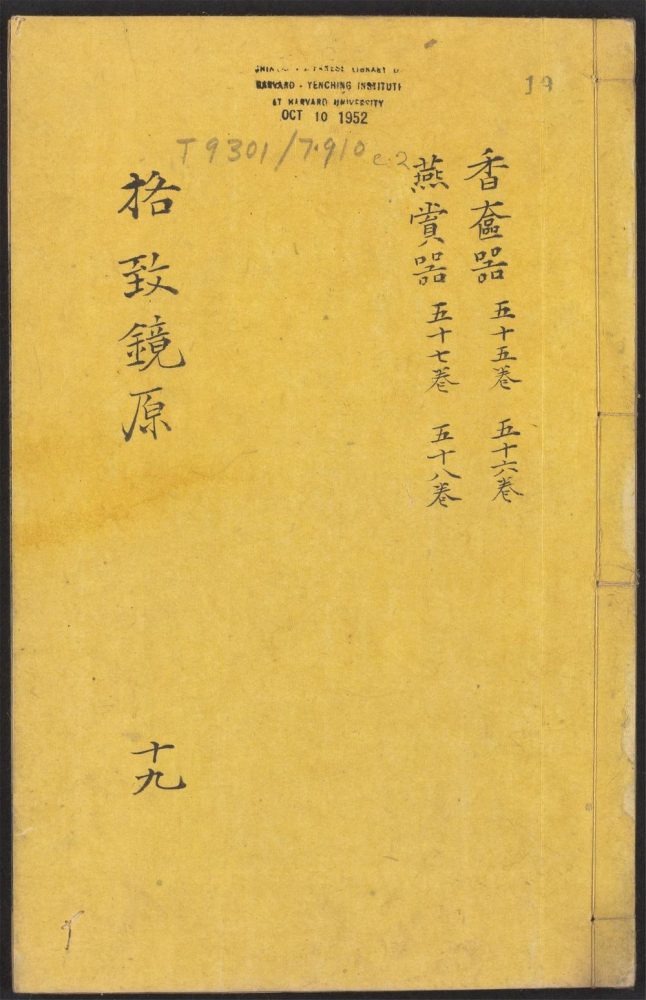 HARVARD - YENCHING INSTITUTE
AT HARVARD UNIVERSITY
OCT 10 1952
19
T9301/7910 c.2
香奩器 五十五卷 五十六卷
燕賞器 五十七卷 五十八卷
格致鏡原 十九